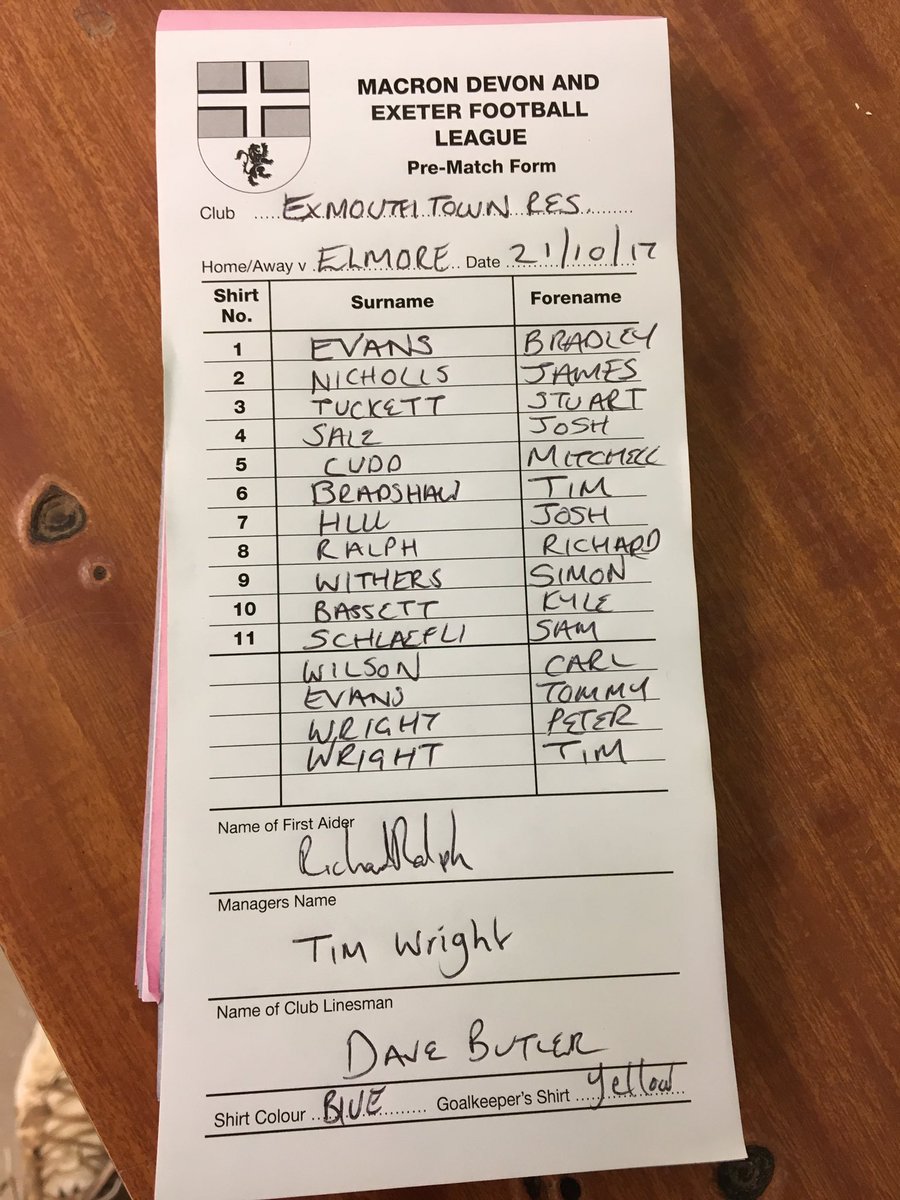 MACRON DEVON AND
EXETER FOOTBALL
LEAGUE
Pre-Match Form
Club EXMOUTH TOWN RES.
Home/Away v ELMORE Date 21/10/17
Shirt No. Surname Forename
1 EVANS BRADLEY
2 NICHOLLS JAMES
3 TUCKETT STUART
4 SALE JOSH
5 CUDD MITCHELL
6 BRADSHAW TIM
7 HILL JOSH
8 RALPH RICHARD
9 WITHERS SIMON
10 BASSETT KYLE
11 SCHLAEFLI SAM
WILSON CARL
EVANS TOMMY
WRIGHT PETER
WRIGHT TIM
Name of First Aider
Richard Ralph
Managers Name
TIM Wright
Name of Club Linesman
DAVE BUTLER
Shirt Colour BLUE Goalkeeper's Shirt Yellow